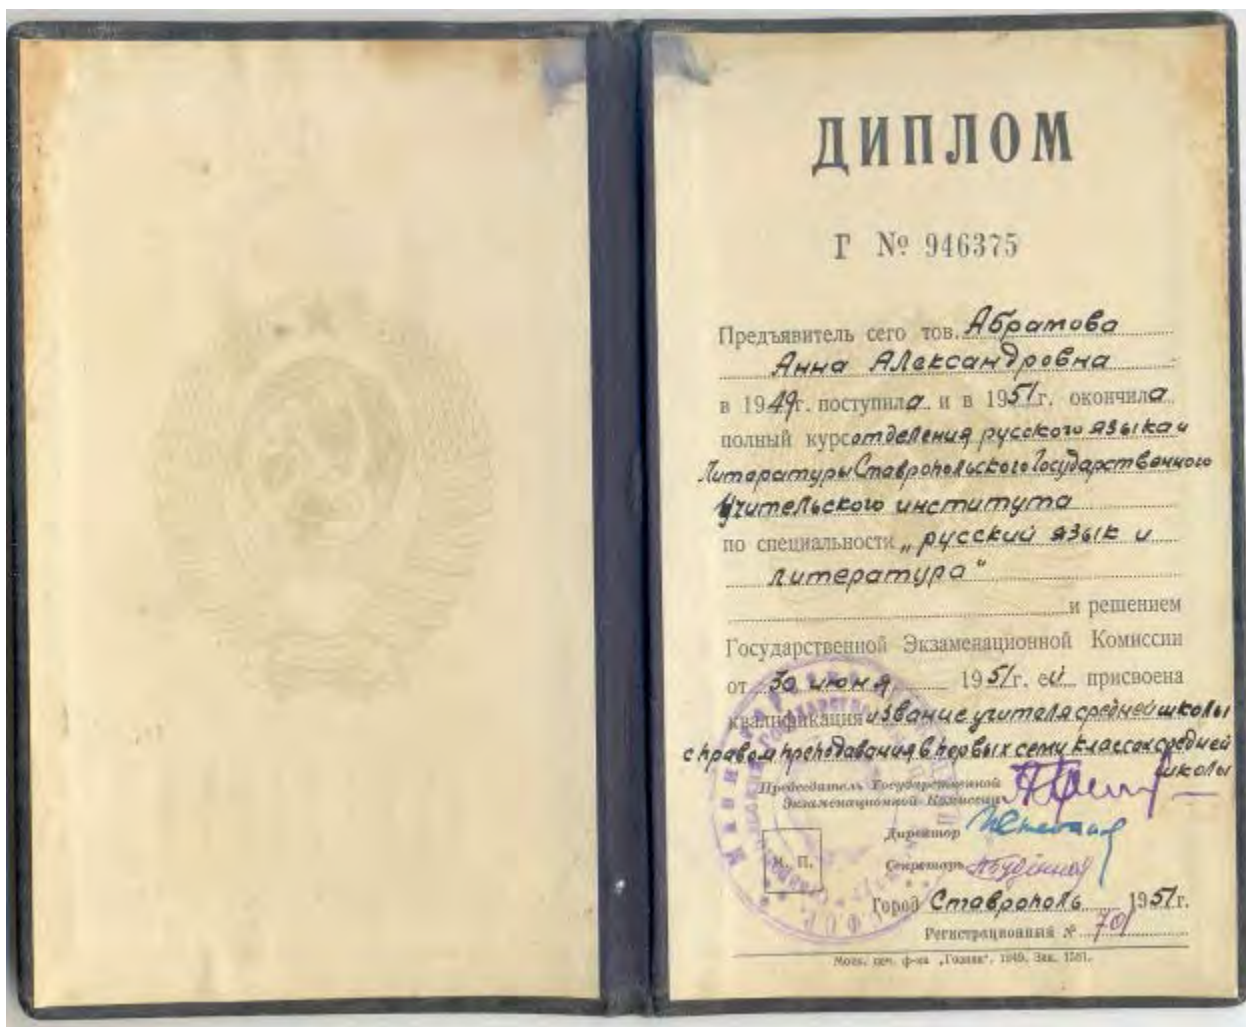 ДИПЛОМ
Г № 946375
Предъявитель сего тов. Абрамова
Анна Александровна
в 1949г. поступила и в 1951г. окончила
полный курс отделения русского языка и
литературы Ставропольского Государственного
Учительского института
по специальности „русский язык и
литература"
и решением
Государственной Экзаменационной Комиссии
от 30 июня 1951г. ей присвоена
квалификация и звание учителя средней школы
с правом преподавания в первых семи классах средней
школы
Председатель Государственной
Экзаменационной Комиссии
Директор
М. П.
Секретарь
Город Ставрополь 1951г.
Регистрационный № 701
Моск. печ. ф-ка „Гознак". 1949. Зак. 1581.